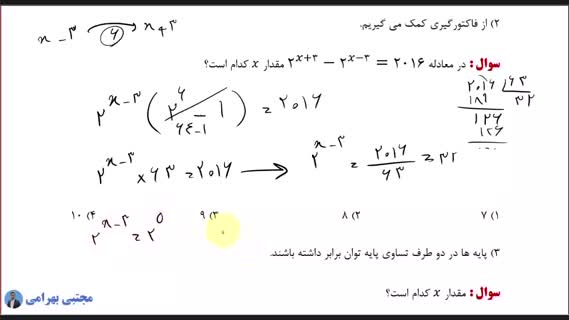 ۲) از فاکتورگیری کمک می گیریم.
x-۳ ۶ x+۳
سوال: در معادله ۲^{x+۳} − ۲^{x−۳} = ۲۰۱۶ مقدار x کدام است؟
۲^{x-۳} (۲^۶ - ۱) = ۲۰۱۶
۶۴-۱
۲۰۱۶ ۶۳
۱۸۹ ۳۲
۱۲۶
۱۲۶
۰۰۰
۲^{x-۳} × ۶۳ = ۲۰۱۶ → ۲^{x-۳} = ۲۰۱۶/۶۳ = ۳۲
۱) ۷ ۲) ۸ ۳) ۹ ۴) ۱۰
۲^{x-۳} = ۲^۵
۳) پایه ها در دو طرف تساوی پایه توان برابر داشته باشند.
سوال: مقدار x کدام است؟
مجتبی بهرامی